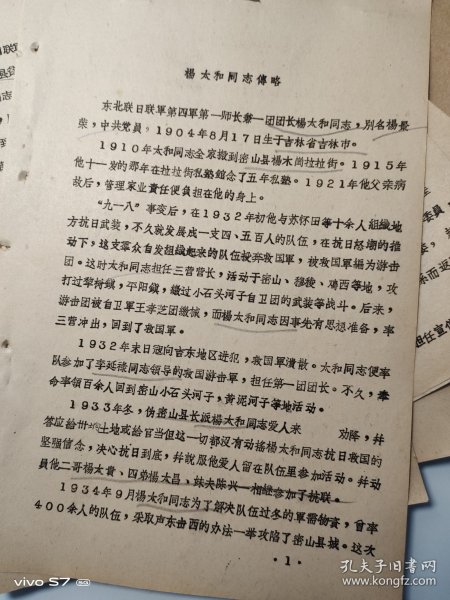 楊太和同志傳略
东北联日联軍第四軍第一师长兼一团团长楊太和同志，別名楊景
柴，中共党員，1904年8月17日生于吉林省吉林市。
1910年太和同志全家搬到密山县楊木崗拉拉街。1915年
他十一岁的那年在拉拉街私塾念了五年私塾。1921年他父亲病
故后，管理家业責任便負担在他的身上。
“九一八”事变后，在1932年初他与苏怀田等十余人組織地
方抗日武装，不久就发展成一支四、五百人的队伍，在抗日怒潮的推
动下，这支羣众自发組織起来的队伍投弃救国軍，被救国軍編为游击
团。这时太和同志担任三营营长，活动于密山、穆稜、鸡西等地，攻
打过犂树鎮，平阳鎮，繳过小石头河子自卫团的武装等战斗。后来，
游击团被自卫軍王孝芝团繳械，而楊太和同志因事先有思想准备，率
三营冲出，回到了救国軍。
1932年末日寇向吉东地区进犯，救国軍潰散。太和同志便率
队参加了李延祿同志領导的救国游击軍，担任第一团团长。不久，奉
命率領百余人回到密山小石头河子，黃泥河子等地活动。
1933年冬，伪密山县长派楊太和同志爱人来 劝降，幷
答应給卅 土地或給官当但这一切都没有动搖楊太和同志抗日救国的
坚强信念，决心抗日到底，幷說服他爱人留在队伍里参加活动。幷动
員他二哥楊太貴、四弟楊太昌、妹夫陈兴一相継参加了抗联。
1934年9月楊太和同志为了解决队伍过冬的軍需物資，曾率
400余人的队伍，采取声东击西的办法一举攻陷了密山县城。这次
·1·
委員，
担任宣
vivo S7
孔夫子旧书网
www.kongfz.com